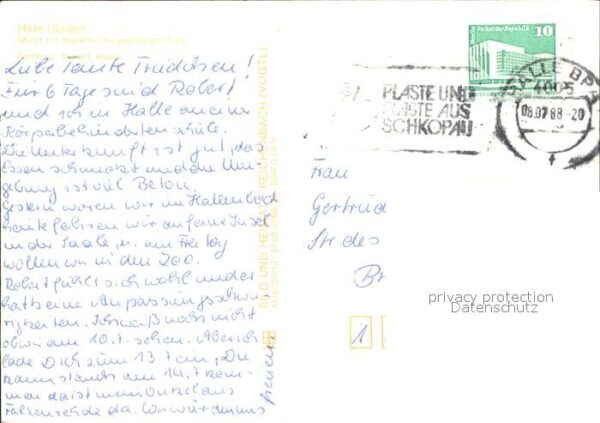 Halle (Saale)
Liebe Tante Trudchen!
Für 6 Tage sind Robert
und ich in Halle an einer
Körperbehindertenschule.
Die Unterkunft ist gut, das
Essen schmeckt und die Um-
gebung ist viel Beton.
Gestern waren wir im Hallenbad
heute fahren wir auf eine Insel
in der Saale, u. am Freitag
wollen wir in den Zoo.
Robert fühlt sich wohl und er
hat keine Anpassungsschwie-
rigkeiten. Ich weiß noch nicht
ob wir am 10.7. schon. Aber ich
lade Dich zum 13.7. ein, Du
kannst auch am 14.7. kom-
men da ist mein Onkel aus
da. Wir würden uns
freuen
BILD UND HEIMAT REICHENBACH (VOGTL)
Palast der Republik
10
PLASTE UND
ELASTE AUS
SCHKOPAU
HALLE BPA
4005
06.07.88-20
Frau
Gertrud
Str. des
Br
privacy protection
Datenschutz
1